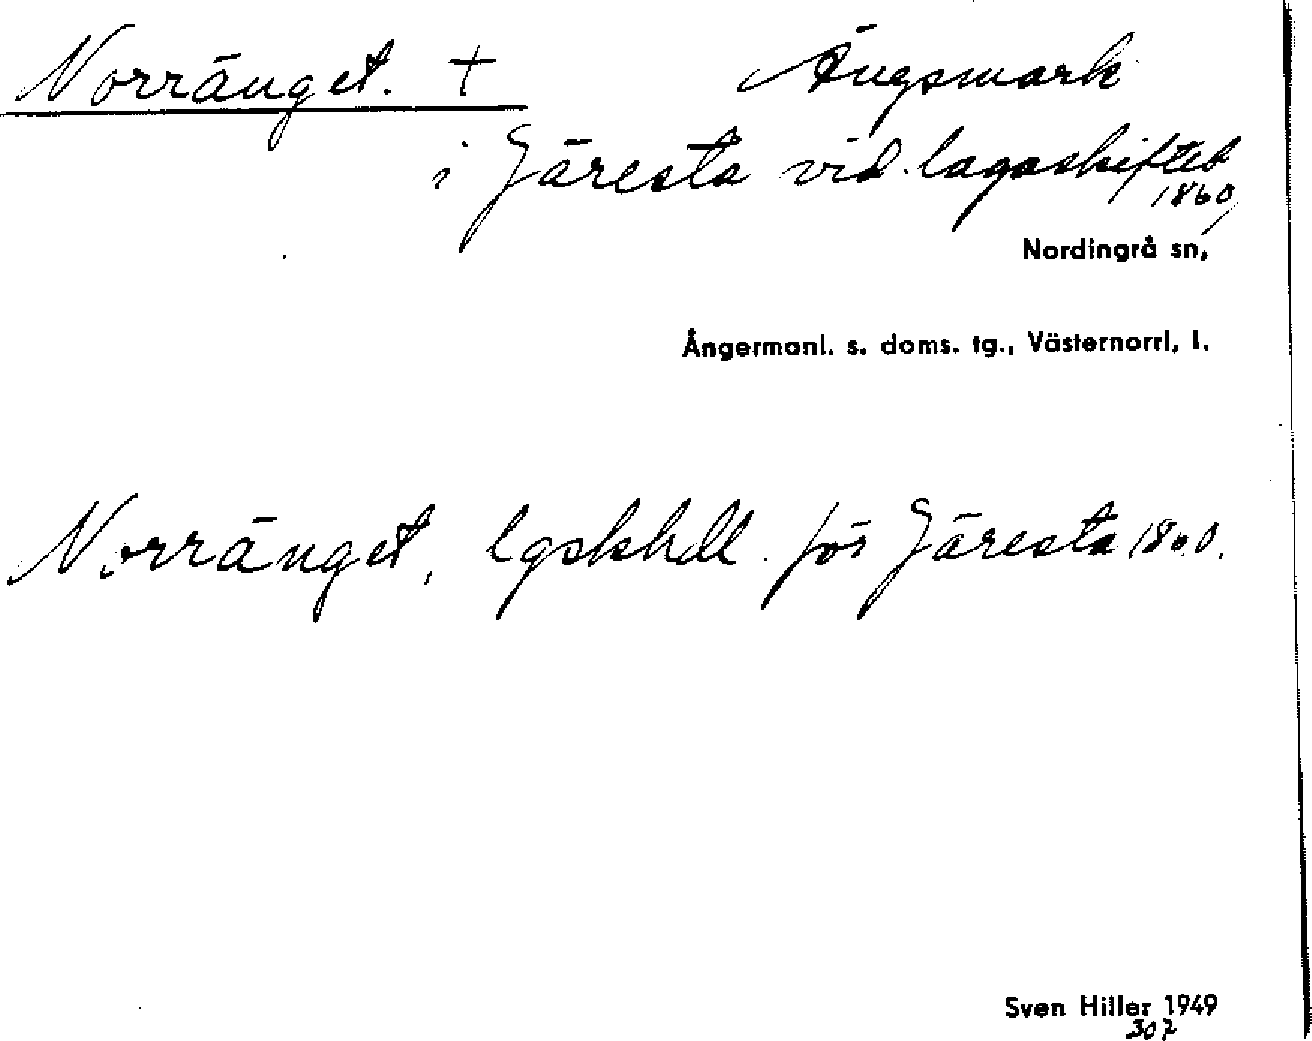 Norränget. +
Ängsmark
i Järesta vid lagaskiftet
1860,
Nordingrå sn,
Ångermanl. s. doms. tg., Västernorrl. l.
Norränget, lgskhdl. för Järesta 1860.
Sven Hiller 1949
307